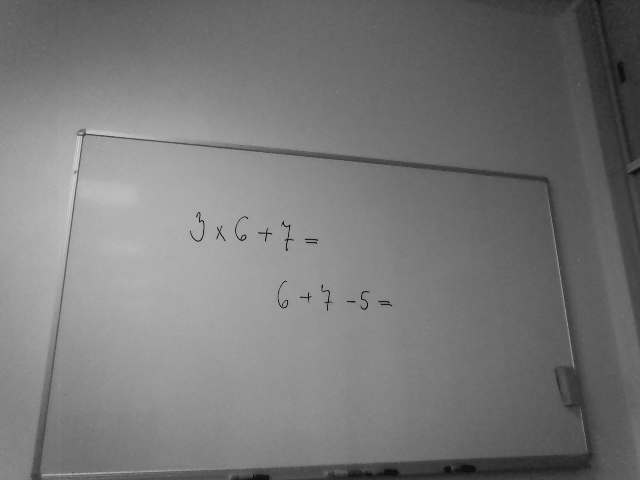 3 × 6 + 7 =
6 + 7 - 5 =